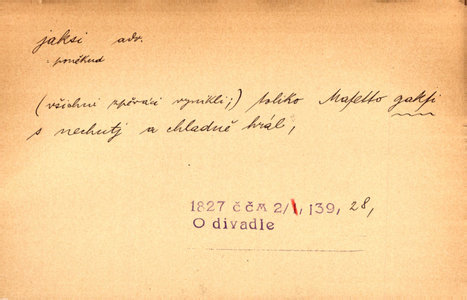 jaksi adv.
: poněkud
(všichni zpěváci vynikli;) toliko Mafetto gakſi
s nechutj a chladně hrál,
1827 ČČM 2/1, 139, 28,
O divadle